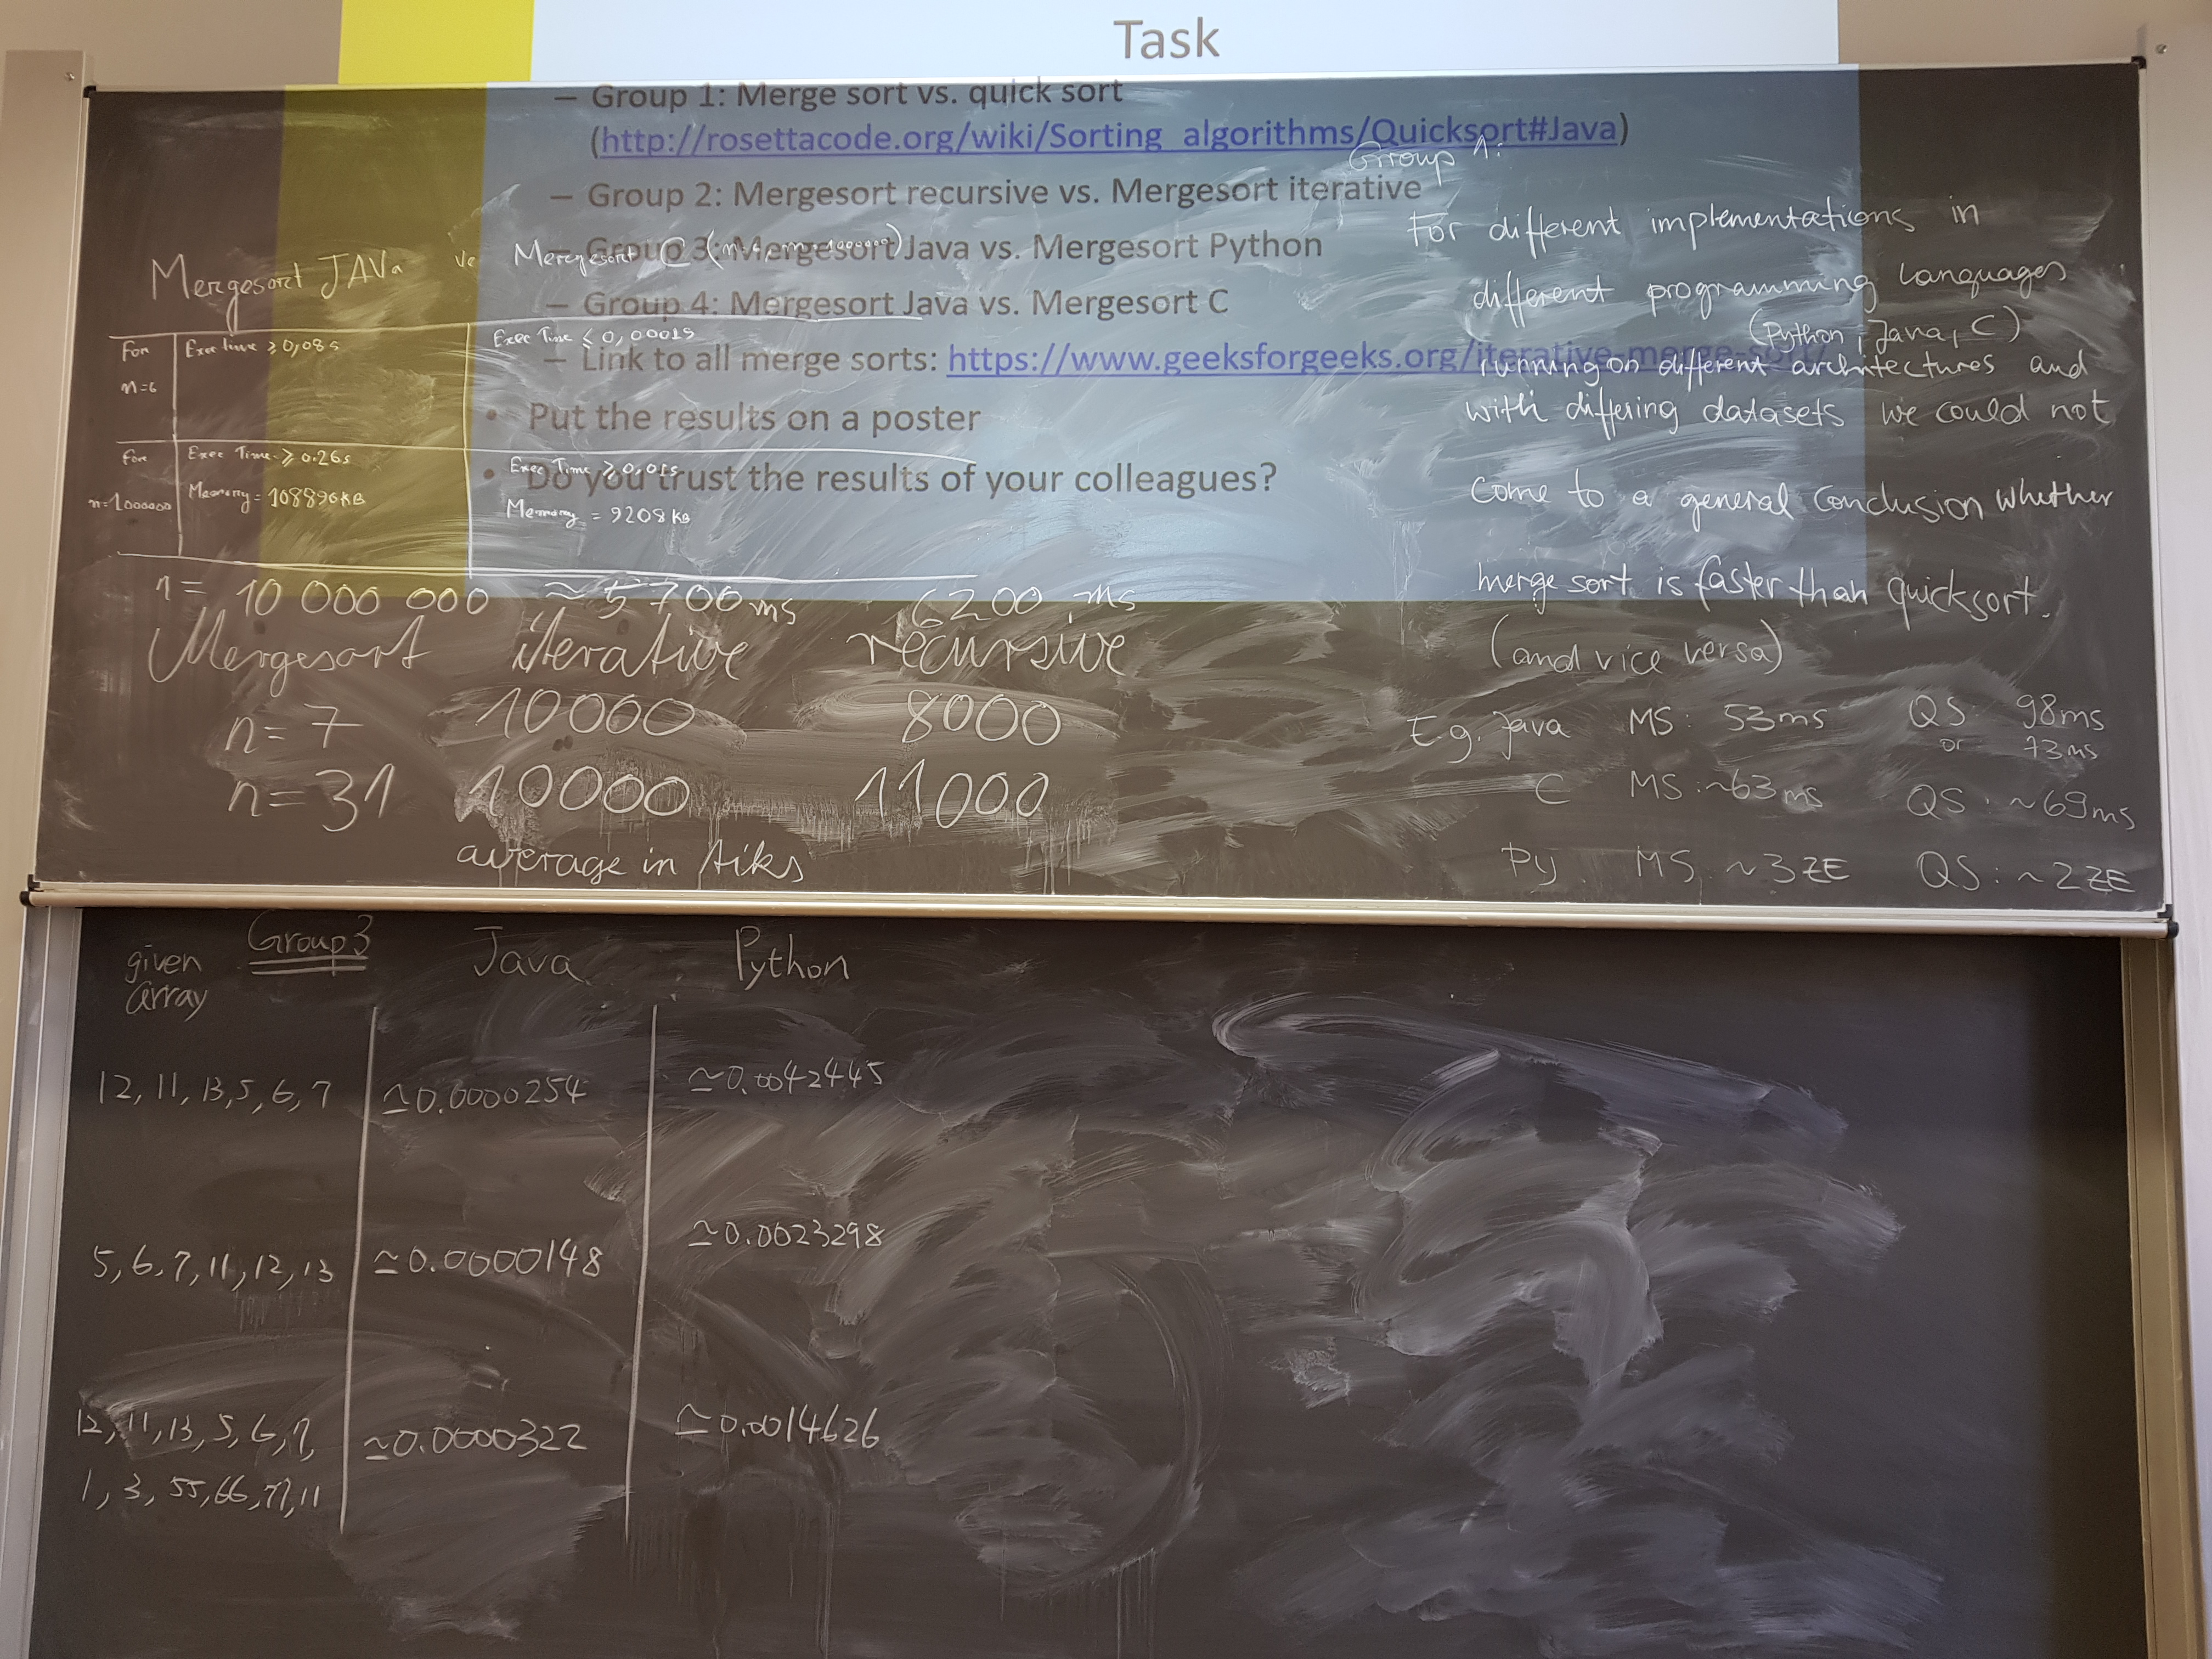 Task
– Group 1: Merge sort vs. quick sort
(http://rosettacode.org/wiki/Sorting_algorithms/Quicksort#Java)
– Group 2: Mergesort recursive vs. Mergesort iterative
– Group 3: Mergesort Java vs. Mergesort Python
– Group 4: Mergesort Java vs. Mergesort C
– Link to all merge sorts: https://www.geeksforgeeks.org/iterative-merge-sort/
• Put the results on a poster
• Do you trust the results of your colleagues?
Mergesort JAVa vs Mergesort C
For n=6 Exec time ≥ 0,08s Exec Time ≤ 0,0001s
for n=1000000 Exec Time ≥ 0.26s Exec Time ≥ 0,01s
Memory = 108896KB Memory = 9208KB
n = 10 000 000 ≈ 5700ms 6200 ms
Mergesort iterative recursive
n = 7 10000 8000
n = 31 10000 11000
average in tiks
Group 1:
For different implementations in
different programming languages
(Python, Java, C)
running on different architectures and
with differing datasets we could not
come to a general conclusion whether
merge sort is faster than quicksort.
(and vice versa)
E.g. Java MS: 53ms QS: 98ms
or 73ms
C MS: ~63ms QS: ~69ms
Py MS: ~3ZE QS: ~2ZE
given array Group 3 Java Python
12, 11, 13, 5, 6, 7 ≃0.0000254 ≃0.0042445
5, 6, 7, 11, 12, 13 ≃0.0000148 ≃0.0023298
12, 11, 13, 5, 6, 7, ≃0.0000322 ≃0.0014626
1, 3, 55, 66, 77, 11